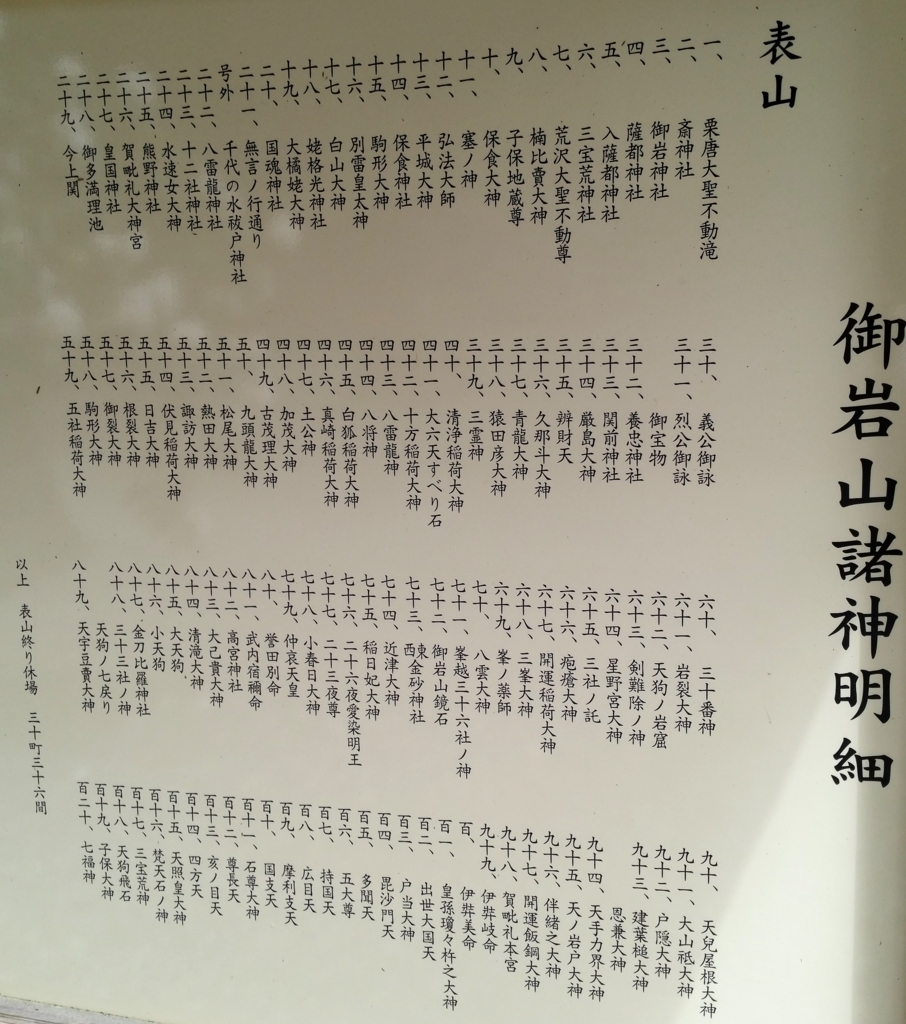 御岩山諸神明細
表山
一、栗唐大聖不動滝
二、斎神社
三、御岩神社
四、薩都神社
五、入薩都神社
六、三宝荒神社
七、荒沢大聖不動尊
八、楠比賣大神
九、子保地蔵尊
十、保食大神
十一、塞ノ神
十二、弘法大師
十三、平城大神
十四、保食神社
十五、駒形大神
十六、別雷皇太神
十七、白山大神
十八、姥格光神社
十九、大橘姥大神
二十、国魂神社
二十一、無言ノ行通り
号外 千代の水祓戸神社
二十二、八雷龍神社
二十三、十二社神社
二十四、水速女大神
二十五、熊野神社
二十六、賀毗礼大神宮
二十七、皇国神社
二十八、御多満理池
二十九、今上関
三十、義公御詠
三十一、烈公御詠
御宝物
三十二、養忠神社
三十三、関前神社
三十四、厳島大神
三十五、辨財天
三十六、久那斗大神
三十七、青龍大神
三十八、猿田彦大神
三十九、三霊神
四十、清浄稲荷大神
四十一、大六天すべり石
四十二、十方稲荷大神
四十三、八雷龍神
四十四、八将神
四十五、白狐稲荷大神
四十六、真崎稲荷大神
四十七、土公神
四十八、加茂大神
四十九、古茂理大神
五十、九頭龍大神
五十一、松尾大神
五十二、熱田大神
五十三、諏訪大神
五十四、伏見稲荷大神
五十五、日吉大神
五十六、根裂大神
五十七、御裂大神
五十八、駒形大神
五十九、五社稲荷大神
六十、三十番神
六十一、岩裂大神
六十二、天狗ノ岩窟
六十三、剣難除ノ神
六十四、星野宮大神
六十五、三社ノ託
六十六、疱瘡大神
六十七、開運稲荷大神
六十八、三峯大神
六十九、峯ノ薬師
七十、八雲大神
七十一、峯越三十六社ノ神
七十二、御岩山鏡石
七十三、東西金砂神社
七十四、近津大神
七十五、稲日妃大神
七十六、二十六夜愛染明王
七十七、二十三夜尊
七十八、小春日大神
七十九、仲哀天皇
八十、誉田別命
八十一、武内宿禰命
八十二、高宮神社
八十三、大己貴大神
八十四、清滝大神
八十五、大天狗、
八十六、小天狗
八十七、金刀比羅神社
八十八、三十三社ノ神
天狗ノ七戻り
八十九、天宇豆賣大神
九十、天兒屋根大神
九十一、大山祗大神
九十二、戸隠大神
九十三、建葉槌大神
恩兼大神
九十四、天手力界大神
九十五、天ノ岩戸大神
九十六、伴緒之大神
九十七、開運飯鋼大神
九十八、賀毗礼本宮
九十九、伊弉岐命
百、伊弉美命
百一、皇孫瓊々杵之大神
百二、出世大国天
百三、戸当大神
百四、毘沙門天
百五、多聞天
百六、五大尊
百七、持国天
百八、広目天
百九、摩利支天
百十、国支天
百十一、石尊大神
百十二、尊長天
百十三、亥ノ目天
百十四、四方天
百十五、天照皇大神
百十六、梵天石ノ神
百十七、三宝荒神
百十八、天狗飛石
百十九、子保大神
百二十、七福神
以上 表山終り休場 三十町三十六間